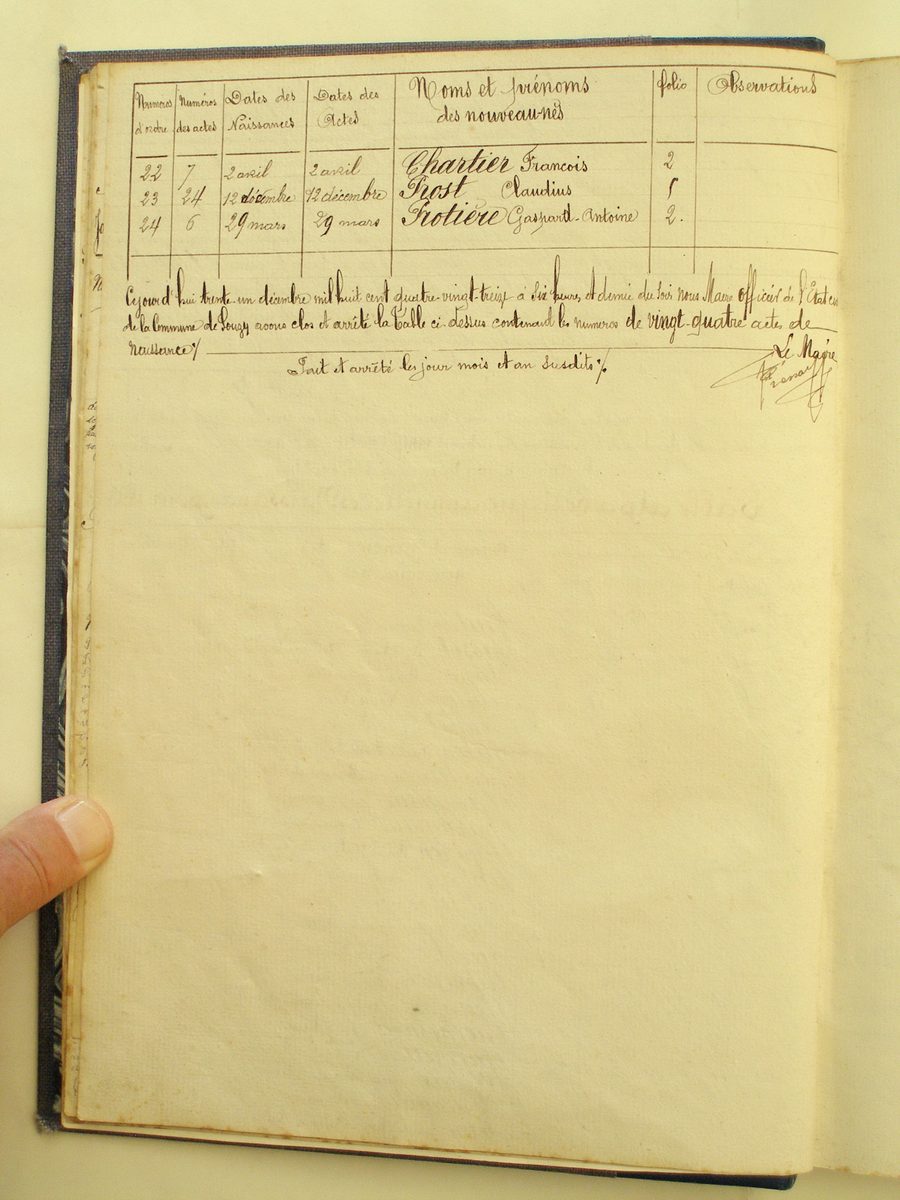 Numéros d'ordre Numéros des actes Dates des Naissances Dates des Actes Noms et prénoms des nouveau-nés folio Observations
22 7 2 avril 2 avril Chartier Francois 2
23 24 12 décembre 12 décembre Frost Claudius 5
24 6 29 mars 29 mars Frotière Gaspard-Antoine 2.
Cejourd'hui trente-un décembre mil huit cent quatre-vingt-treize à six heures et demie du soir nous Maire officier de l'Etat
de la Commune de Souzy avons clos et arrêté la Table ci-dessus contenant les numéros de vingt-quatre actes de
naissance %
Fait et arrêté les jour mois et an susdits %
Le Maire